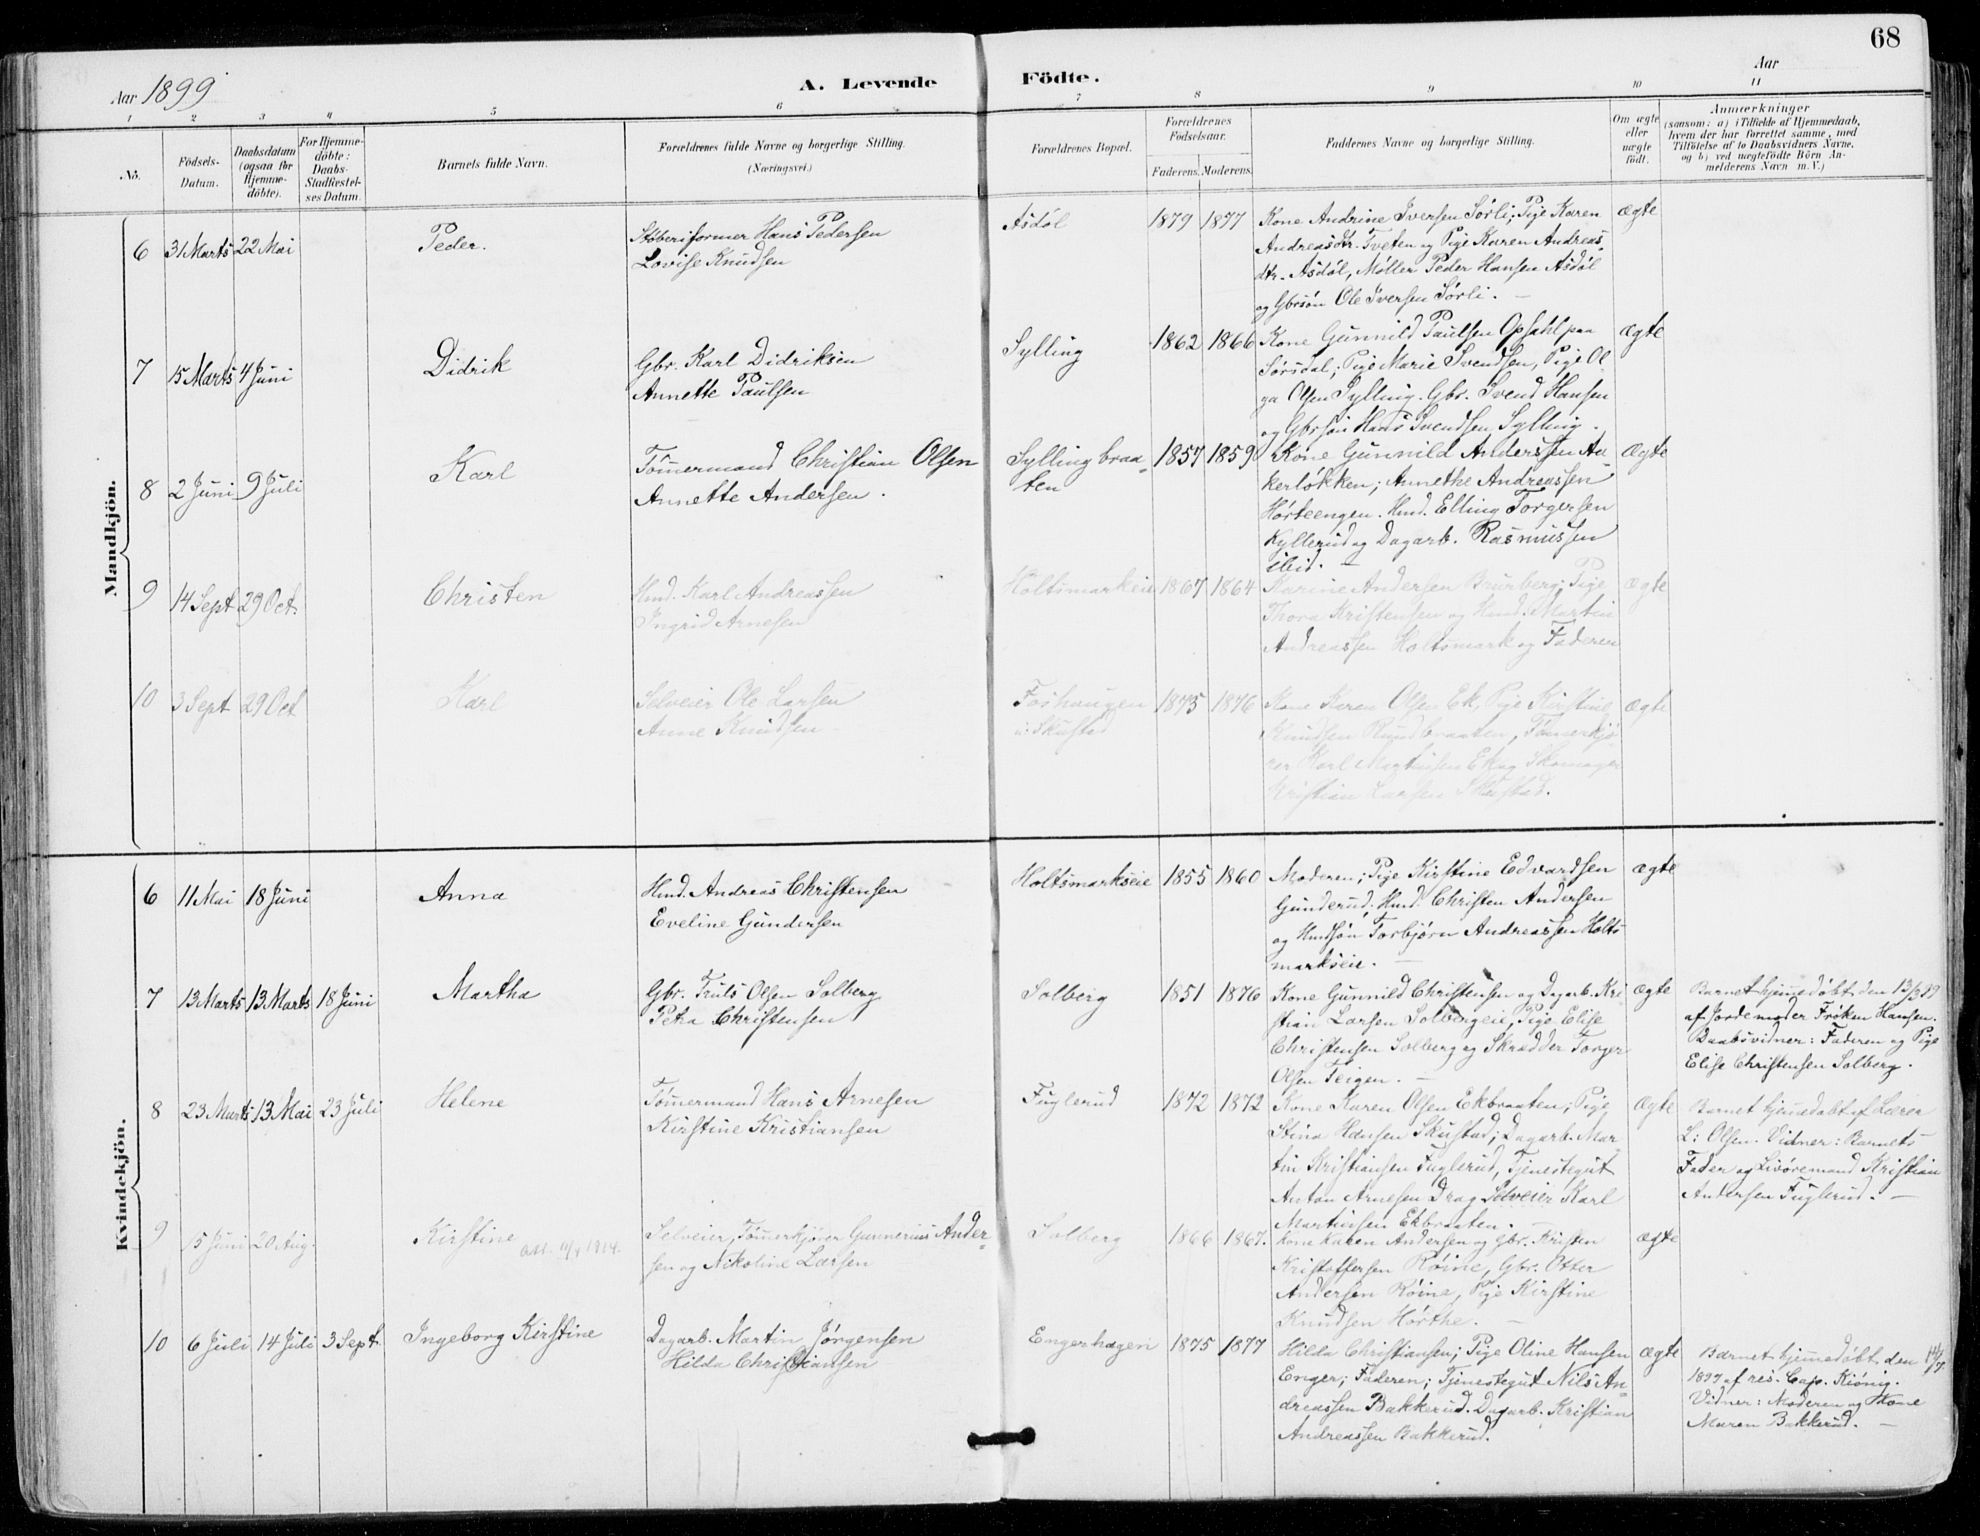 68
Aar 1899
A. Levende Födte.
Aar
1 2 3 4 5 6 7 8 9 10 11
No.
Födsels-Datum.
Daabsdatum (ogsaa for Hjemme-döbte).
For Hjemme-döbte: Daabs-Stadfæstel-ses Datum.
Barnets fulde Navn.
Forældrenes fulde Navne og borgerlige Stilling. (Næringsvei.)
Forældrenes Bopæl.
Forældrenes Födselsaar.
Faderens. Moderens.
Faddernes Navne og borgerlige Stilling.
Om ægte eller uægte födt.
Anmærkninger
(saasom: a) i Tilfælde af Hjemmedaab, hvem der har forrettet samme, med Tilföielse af to Daabsvidners Navne, og b) ved uægtefödte Börn An-melderens Navn m. V.)
Mandkjön.
6 31 Marts 22 Mai
Peder.
Støberiformer Hans Pedersen
Lovise Knudsen
Asdøl
1879 1877
Kone Andrine Iversen Sørli; Pige Karen
Andreasdtr. Tveten og Pige Karen Andreas-
dtr. Asdøl, Møller Peder Hansen Asdøl
og Gbrsøn Ole Iversen Sørli. —
ægte
7 15 Marts 4 Juni
Didrik
Gbr. Karl Didriksen
Annette Paulsen
Sylling
1862 1866
Kone Gunnild Paulsen Opsahl paa
Sørsdal; Pige Marie Svendsen, Pige Ol
ga Olsen Sylling. Gbr. Svend Hansen
og Gbrsøn Hans Svendsen Sylling.
ægte
8 2 Juni 9 Juli
Karl
Tømermand Christian Olsen
Annette Andersen.
Syllingbraa-
ten
1857 1859
Kone Gunnild Anderssen An-
kerløkken; Annethe Andreassen
Hørteengen. Hmd. Elling Torgersen
Kyllerud og Dagarb. Rasmussen
ibid. —
Ægte
9 14 Sept 29 Oct.
Christen
Hmd. Karl Andreassen
Ingrid Arnesen
Holtsmarkeie
1867 1864
Karine Andersen Bruberg; Pige
Thora Kristensen og Hmd. Martin
Andreassen Holtsmark og Faderen
Ægte
10 3 Sept 29 Oct
Karl
Selveier Ole Larsen
Anne Knudsen
Foshaugen
u: Skustad
1875 1876
Kone Karen Olsen Ek, Pige Kirstine
Knudsen Rundbraaten, Tømerkjø
rer Karl Martinsen Ek og Skomager
Kristian Larsen Skustad.
ægte
Kvindekjön.
6 11 Mai 18 Juni
Anna
Hmd. Andreas Christensen
Eveline Gundersen
Holtsmarkseie
1855 1860
Moderen; Pige Kirstine Edvardsen
Gunderud; Hmd. Christen Andersen
og Hmdsøn Torbjørn Andreassen Holts
markseie. —
ægte
7 13 Marts 13 Marts 18 Juni
Martha
Gbr. Truls Olsen Solberg
Petra Christensen
Solberg
1851 1876
Kone Gunnild Christensen og Dagarb. Kri
stian Larsen Solbergeie, Pige Elise
Christensen Solberg og Skrædder Torger
Olsen Teigen. —
ægte
Barnet hjemedøbt den 13/3 99
af Jordemoder Frøken Hansen.
Daabsvidner: Faderen og Pige
Elise Christensen Solberg.
8 23 Marts 13 Mai 23 Juli
Helene
Tømermand Hans Arnesen
Kirstine Kristiansen
Fuglerud
1872 1872
Kone Karen Olsen Ekbraaten; Pige
Stina Hansen Skustad; Dagarb. Mar-
tin Kristiansen Fuglerud, Tjenestegut
Anton Arnesen Drag Selveier Karl
Martinsen Ekbraaten.
Ægte
Barnet hjemedøbt af Lærer
L: Olsen. Vidner: Barnets
Fader og Livøremand Kristian
Andersen Fuglerud. —
9 5 Juni 20 Aug.
Kirstine
Att. 1914.
Selveier, Tømerkjører Gunnerius Ander-
sen og Nikoline Larsen
Solberg
1866 1867.
Kone Karen Andersen og Gbr. Kristen
Kristoffersen Røine, Gbr. Otter
Andersen Røine, Pige Kirstine
Knudsen Hørthe. —
ægte
10 6 Juli 14 Juli 3 Sept.
Ingeborg Kirstine
Dagarb. Martin Jørgensen
Hilda Christiansen
Engerhagen
1875 1877
Hilda Christiansen; Pige Oline Hansen
Enger; Faderen; Tjenestegut Nils An-
dreassen Bakkerud. Dagarb. Kristian
Andreassen Bakkerud.
ægte
Barnet hjemedøbt den 14/7
1899 af res. Cap. Kiønig.
Vidner: Moderen og Kone
Maren Bakkerud. —